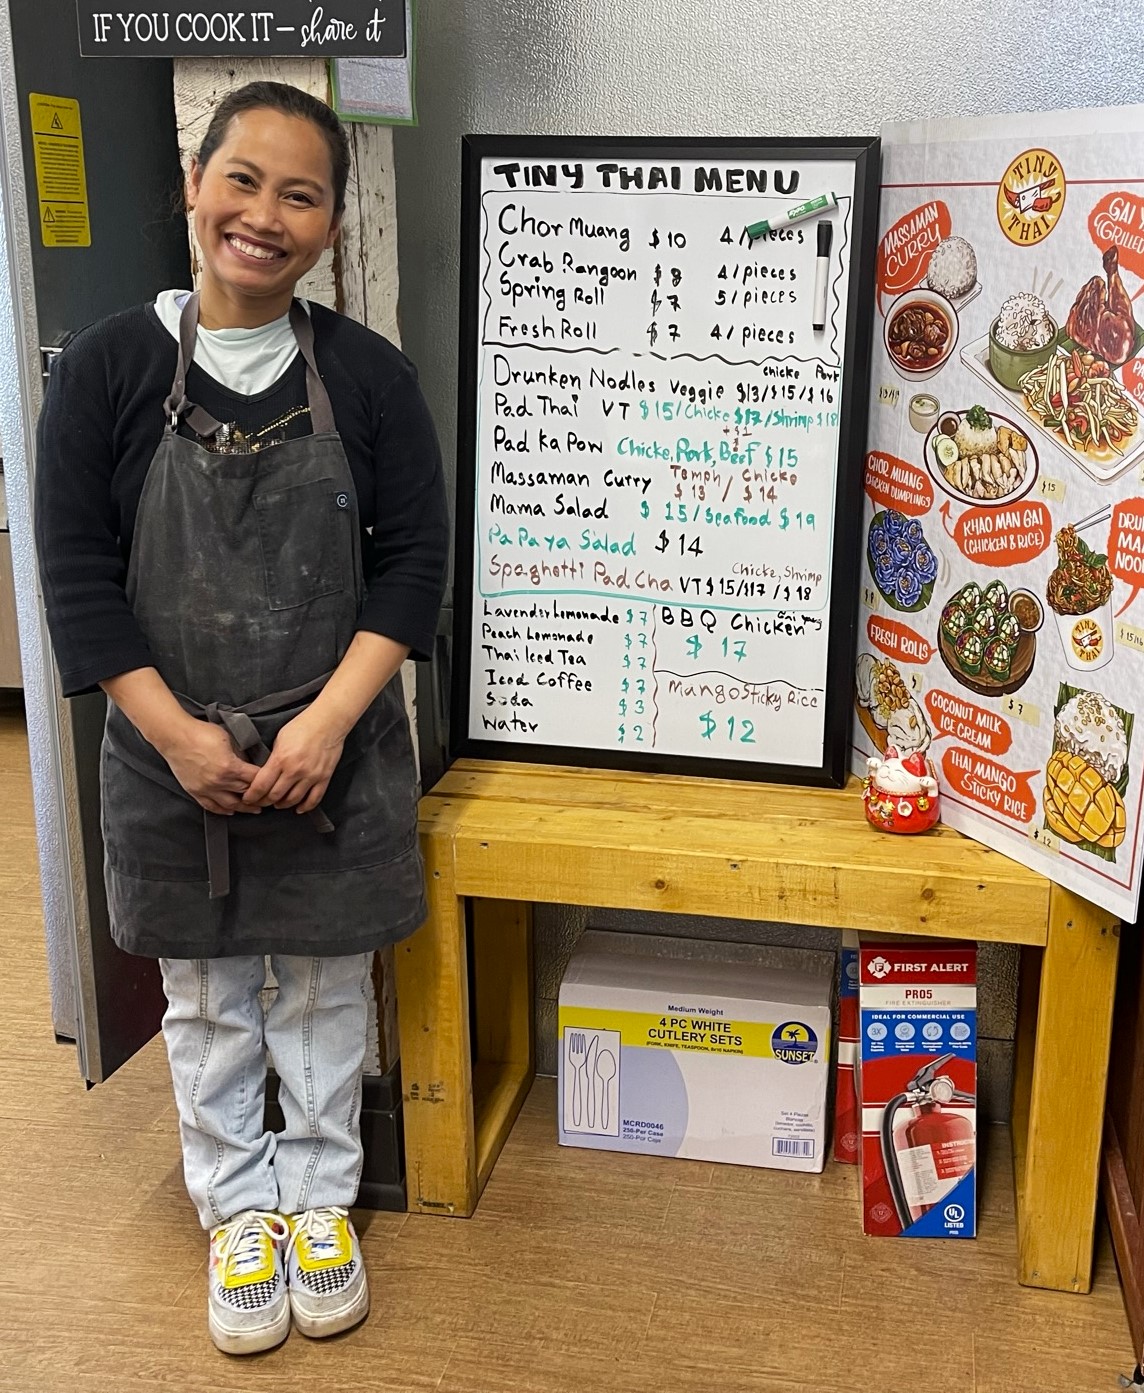 IF YOU COOK IT - share it
TINY THAI MENU
Chor Muang $10 4/pieces
Crab Rangoon $8 4/pieces
Spring Roll $7 5/pieces
Fresh Roll $7 4/pieces
chicke Pork
Drunken Nodles Veggie $13/$15/$16
Pad Thai VT $15/Chicke $17/Shrimp $18
+$1
Pad Ka Pow Chicke, Pork, Beef $15
Massaman Curry Temph $13 / Chicke $14
Mama Salad $15/Seafood $19
PaPaya Salad $14
Chicke, Shrimp
Spaghetti Pad Cha VT $15/$17/$18
Lavender Lemonade $7
Peach Lemonade $7
Thai Iced Tea $7
Iced Coffee $7
Soda $3
Water $2
BBQ Chicken
$17
Mango Sticky Rice
$12
TINY
THAI
MASSAMAN
CURRY
GAI
(GRILLED
CHOR MUANG
CHICKEN DUMPLINGS
$15
KHAO MAN GAI
(CHICKEN & RICE)
$8
FRESH ROLLS
TINY
THAI
$7
COCONUT MILK
ICE CREAM
THAI MANGO
STICKY RICE
$12
Medium Weight
4 PC WHITE
CUTLERY SETS
(FORK, KNIFE, TEASPOON, 8x10 NAPKIN)
SUNSET
MCRD0046
250-Per Case
250-Por Caja
FIRST ALERT
PRO5
FIRE EXTINGUISHER
IDEAL FOR COMMERCIAL USE
UL
LISTED